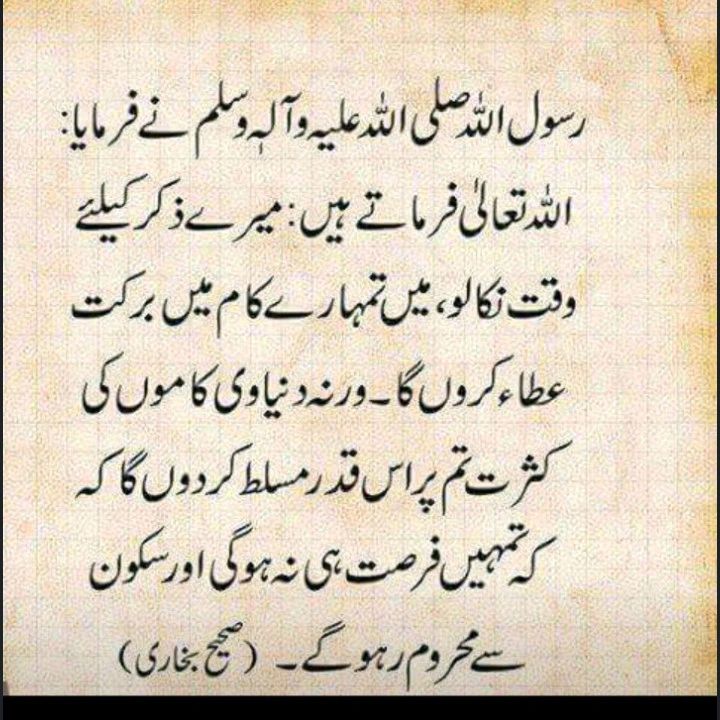 رسول اللہ صلی اللہ علیہ وآلہٖ وسلم نے فرمایا:
اللہ تعالیٰ فرماتے ہیں: میرے ذکر کیلئے
وقت نکالو، میں تمہارے کام میں برکت
عطاء کروں گا۔ ورنہ دنیاوی کاموں کی
کثرت تم پر اس قدر مسلط کردوں گا کہ
کہ تمہیں فرصت ہی نہ ہوگی اور سکون
سے محروم رہو گے۔ (صحیح بخاری)